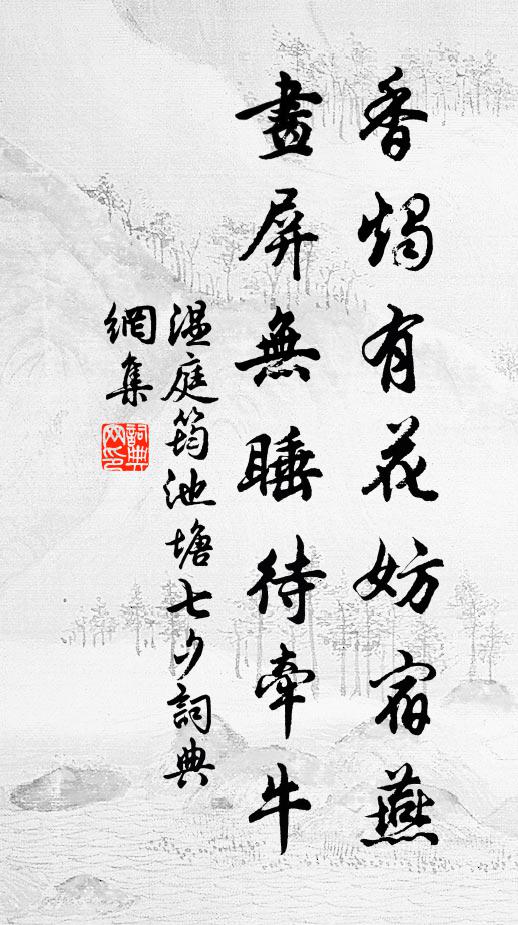 香燭有花妨宿燕
畫屏無睡待牽牛
溫庭筠池塘七夕詞典
網集
詞典
網印